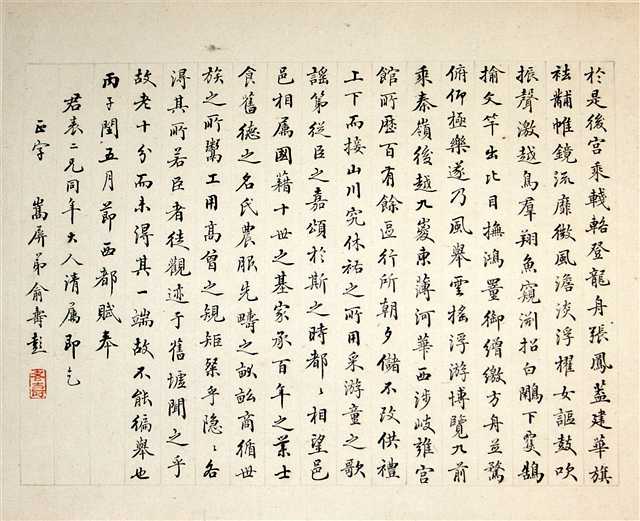 於是後宮乘輚輅登龍舟張鳳蓋建華旗
袪黼帷鏡流靡微風澹淡浮擢女謳鼓吹
振聲激越鳥羣翔魚窺渕招白鷴下雙鵠
揄文竿出比目撫鴻罿御矰繳方舟並騖
俯仰極樂遂乃風舉雲搖浮游博覽九前
乘秦嶺後越九嵏東薄河華西涉岐雍宮
館所歷百有餘區行所朝夕儲不改供禮
上下而接山川究休祐之所用采游童之歌
謠第從臣之嘉頌於斯之時都〻相望邑
邑相屬國籍十世之基家承百年之業士
食舊德之名氏農服先疇之畝商循世
族之所鬻工用高曾之規矩粲乎隱〻各
得其所若臣者徒觀迹于舊墟聞之乎
故老十分而未得其一端故不能徧舉也
丙子閏五月節西都賦奉
君表二兄同年大人清屬即乞
正字
嵩屏弟俞壽彭